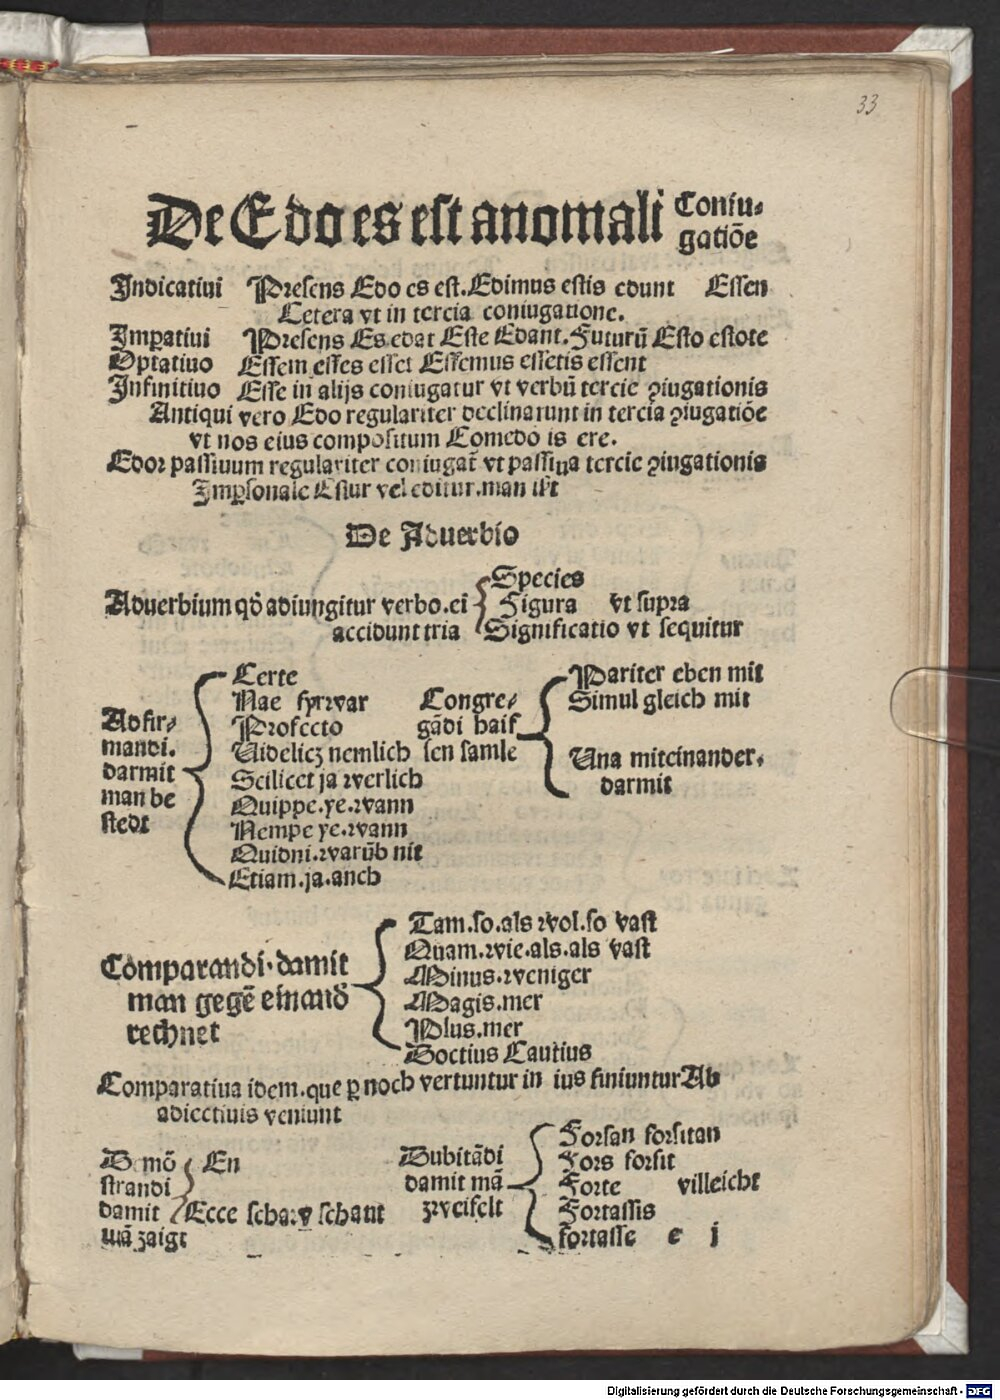 33
De Edo es est anomali Coniu⸗
gatiōe
Indicatiui Presens Edo es est. Edimus estis edunt Essen
Cetera vt in tercia coniugatione.
Imꝑatiui Presens Es edat Este Edant. Futurū Esto estote
Optatiuo Essem esses esset Essemus essetis essent
Infinitiuo Esse in alijs coniugatur vt verbū tercie ꝯiugationis
Antiqui vero Edo regulariter declinarunt in tercia ꝯiugatiōe
vt nos eius compositum Comedo is ere.
Edor passiuum regulariter coniugat̄ vt passiua tercie ꝯiugationis
Imꝑsonale Estur vel editur. man ist
De Aduerbio
Aduerbium qđ adiungitur verbo. ei
accidunt tria
Species
Figura vt supra
Significatio vt sequitur
Adfir⸗
mandi.
darmit
man be
stedt
Certe
Nae fyrwar
Profecto
Uidelicz nemlich
Scilicet ja werlich
Quippe. ye. wann
Nempe ye. wann
Quidni. warūb nit
Etiam. ja. auch
Congre⸗
gādi haif
sen samle
Pariter eben mit
Simul gleich mit
Una miteinander.
darmit
Comparandi. damit
man gegē einand̄
rechnet
Tam. so. als wol. so vast
Quam. wie. als. als vast
Minus. weniger
Magis. mer
Plus. mer
Doctius Cautius
Comparatiua idem. que ꝑ noch vertuntur in ius finiuntur Ab
adiectiuis veniunt
Demō
strandi
damit
mā zaigt
En
Ecce schaw schaut
Dubitādi
damit mā
zweifelt
Forsan forsitan
Fors forsit
Forte villeicht
Fortassis
fortasse e j
Digitalisierung gefördert durch die Deutsche Forschungsgemeinschaft - DFG